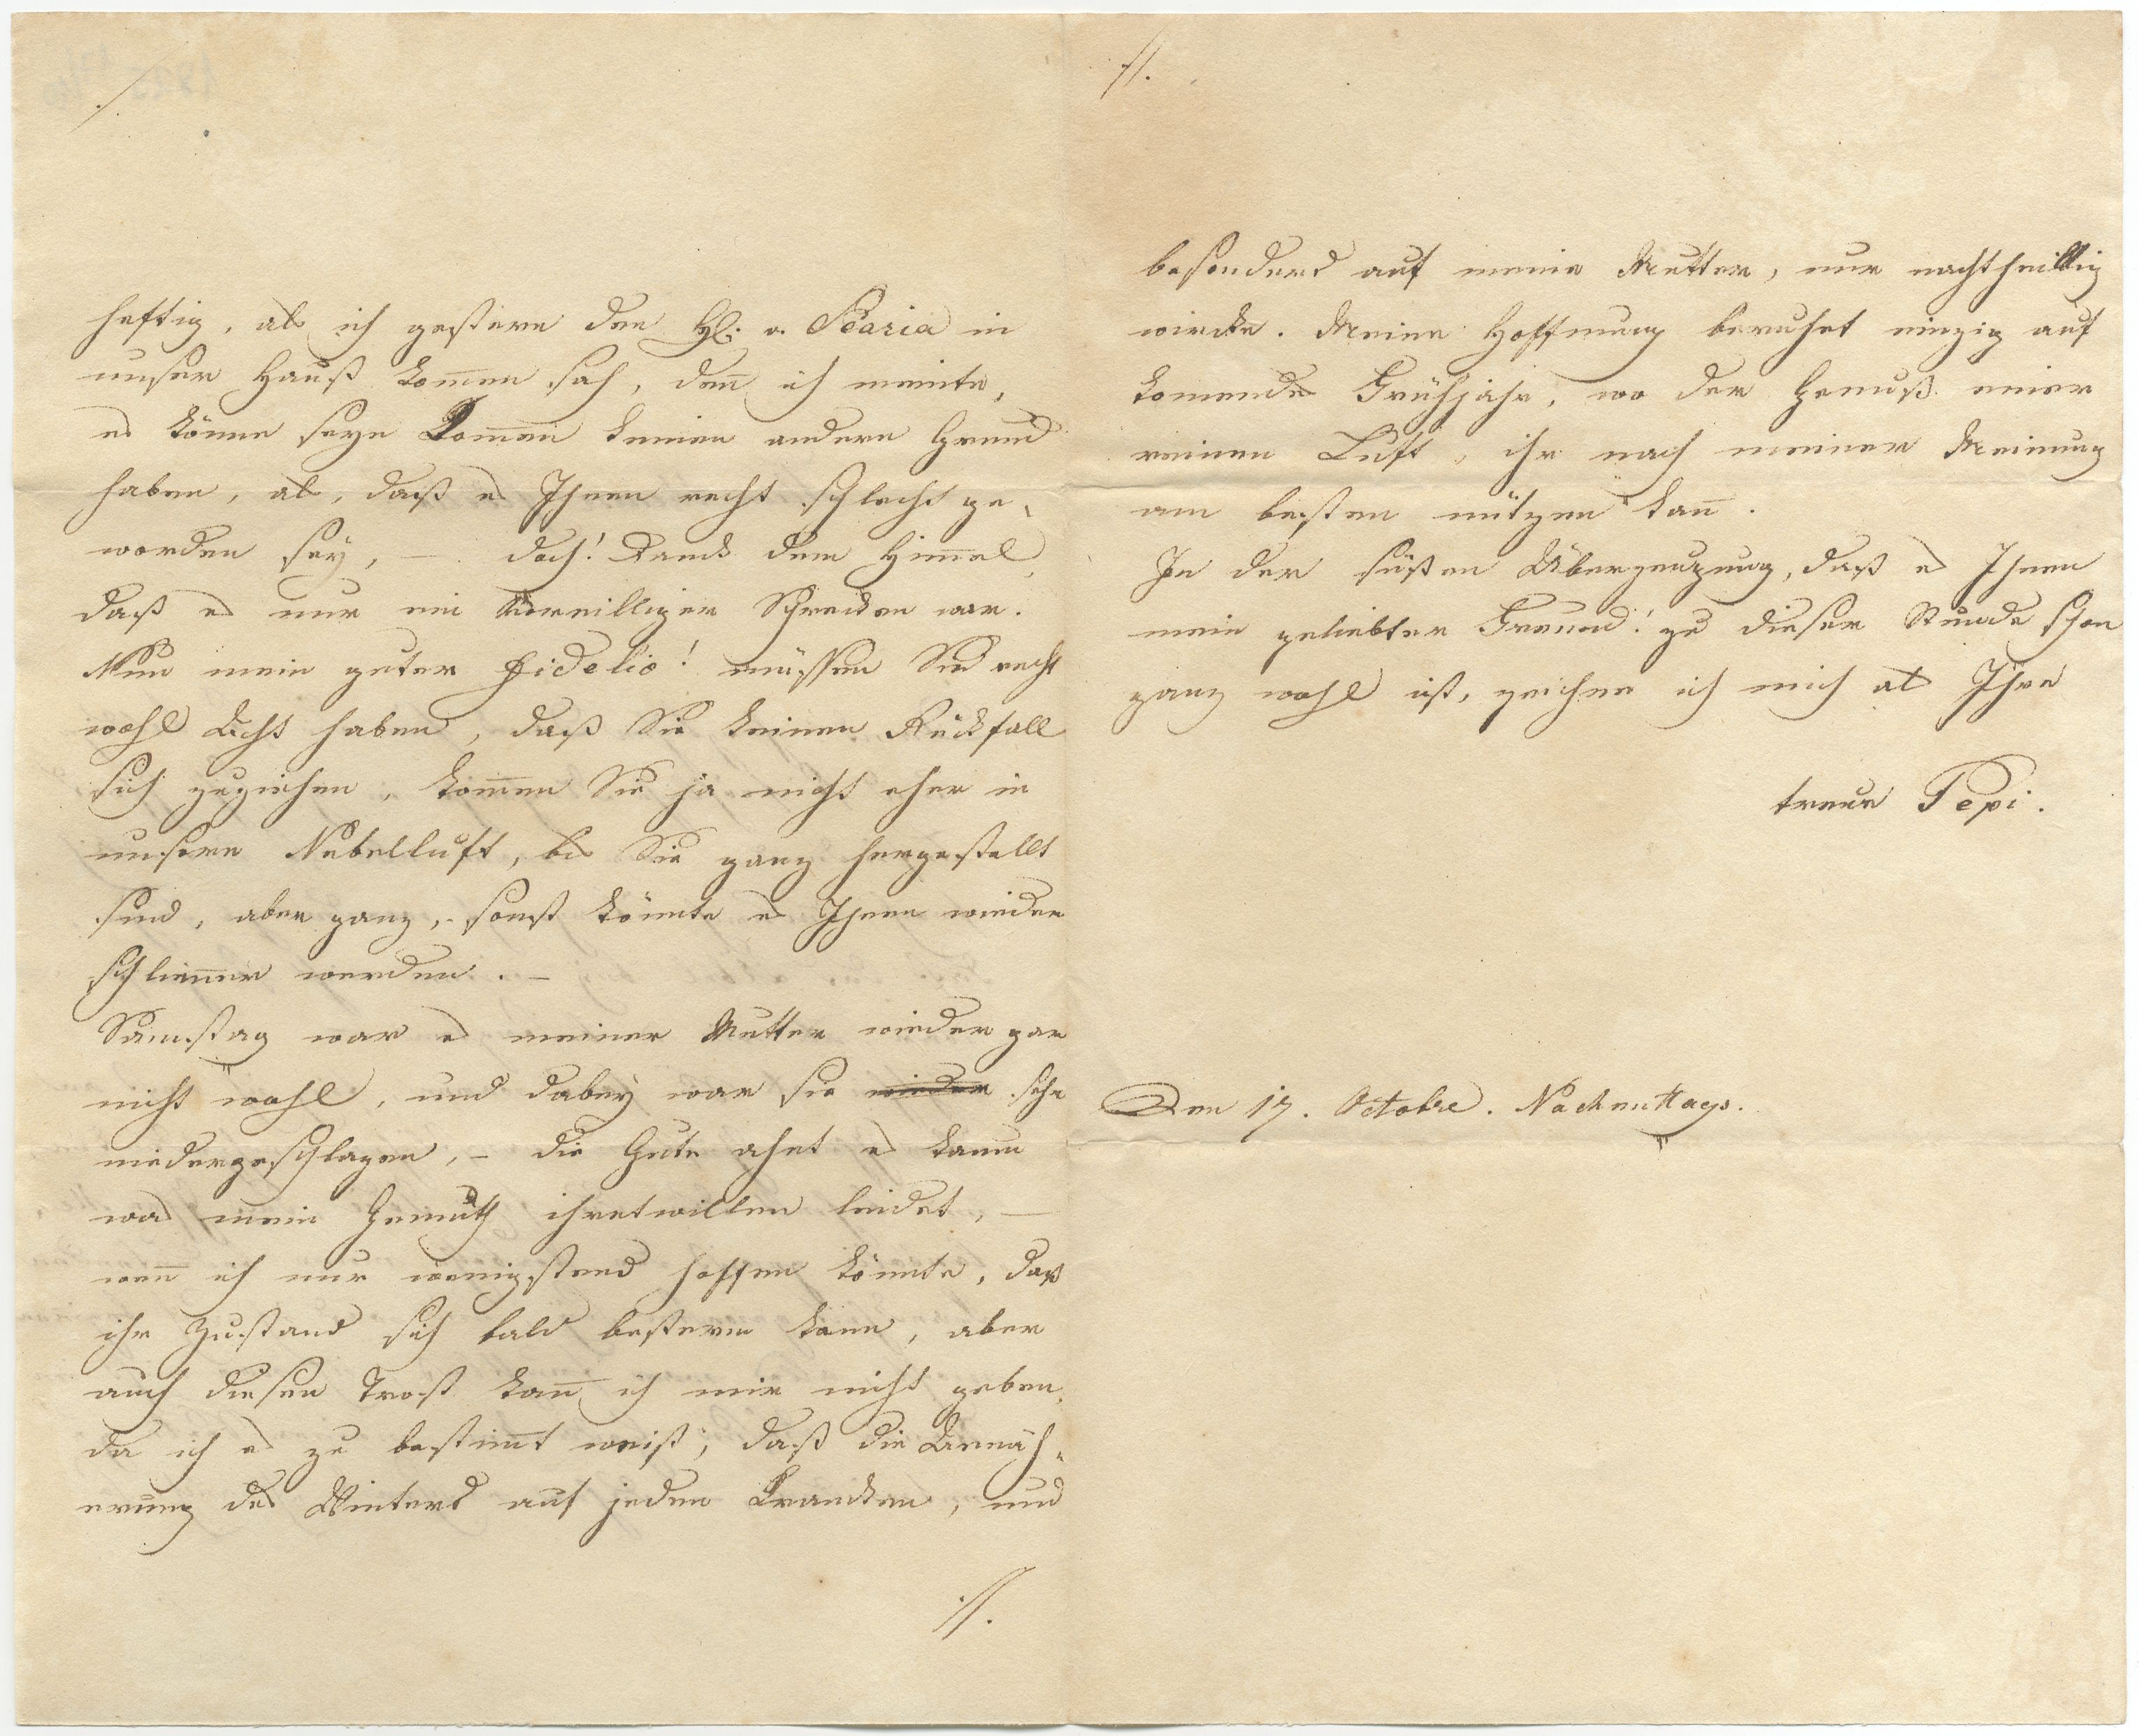 ./.
heftig, als ich gestern den H. v. Scaria in
unser Hauß kom̄en sah, den̄ ich meinte,
es könne seyn Kom̄en keinen andern Grund
haben, als, daß es Ihnen recht schlecht ge-
worden sey, – doch! Dank dem Him̄el,
daß es nur ein voreilliger Schrecken war.
Nun mein guter Fidelio! müssen Sie recht
wohl Acht haben, daß Sie keinen Rückfall
sich zuziehen, kom̄en Sie ja nicht eher in
unsere Nebelluft, bis Sie ganz hergestellt
sind, aber ganz, – sonst könnte es Ihnen wieder
schlim̄er werden. –
Samstag war es meiner Mutter wieder gar
nicht wohl, und dabey war sie wieder sehr
niedergeschlagen, – die Gute ahnt es kaum
was mein Gemüth ihretwillen leidet, –
wen̄ ich nur wenigstens hoffen könnte, daß
ihr Zustand sich bald bessern kann, aber
auch diesen Trost kan̄ ich mir nicht geben,
da ich es zu bestim̄t weiß, daß die Annäh-
erung des Winters auf jeden Kranken, und
.//.
.//.
besonders auf meine Mutter, nur nachtheillig
wircke. Meine Hoffnung beruhet einzig auf
kom̄endes Frühjahr, wo der Genuß einer
reinen Luft, ihr nach meiner Meinung
am besten nützen kan̄.
In der süßen Überzeugung, daß es Ihnen
mein geliebter Freund! zu dieser Stunde schon
ganz wohl ist, zeichne ich mich als Ihre
treue Pepi.
Den 17. Octobre. Nachmittags.